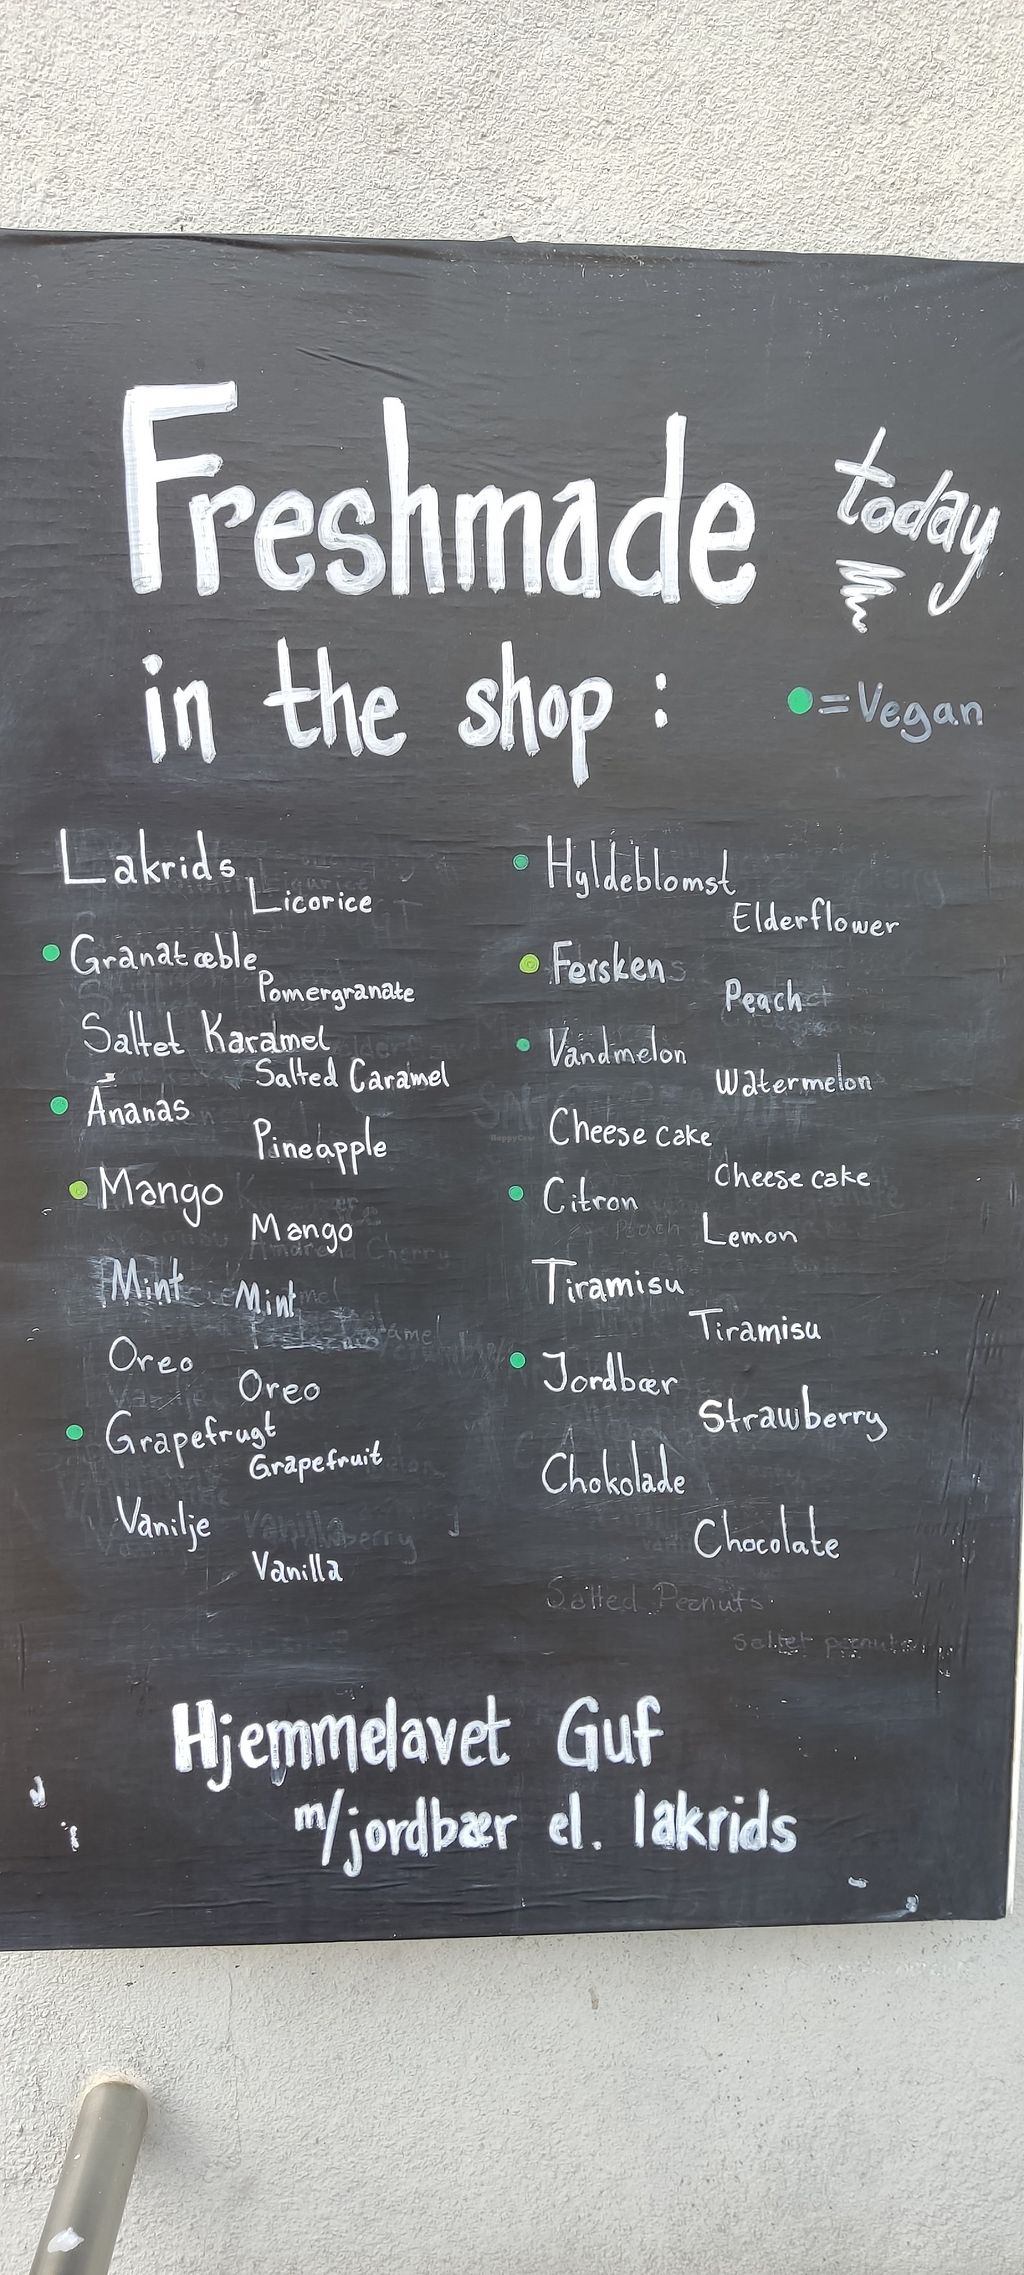 Freshmade today
in the shop :
= Vegan
Lakrids
Licorice
Granatæble
Pomergranate
Saltet Karamel
Salted Caramel
Ananas
Pineapple
Mango
Mango
Mint Mint
Oreo
Oreo
Grapefrugt
Grapefruit
Vanilje
Vanilla
Hyldeblomst
Elderflower
Fersken
Peach
Vandmelon
Watermelon
Cheese cake
Cheese cake
Citron
Lemon
Tiramisu
Tiramisu
Jordbær
Strawberry
Chokolade
Chocolate
Salted Peanuts
Hjemmelavet Guf
m/jordbær el. lakrids
HappyCow